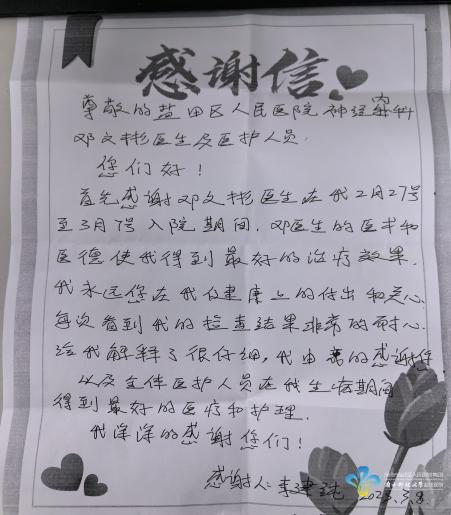 感谢信
尊敬的盐田区人民医院神经内科
邓文彬医生及医护人员.
您们好！
首先感谢邓文彬医生在我2月27号
至3月7号入院期间.邓医生的医术和
医德使我得到最好的治疗效果.
我永远您在我健康上的付出和关心.
每次看到我的检查结果非常的耐心.
给我解释了很仔细.我由衷的感谢你
以及全体医护人员在我生病期间
得到最好的医疗和护理.
我深深的感谢您们！
感谢人: 李建
2023.3.8